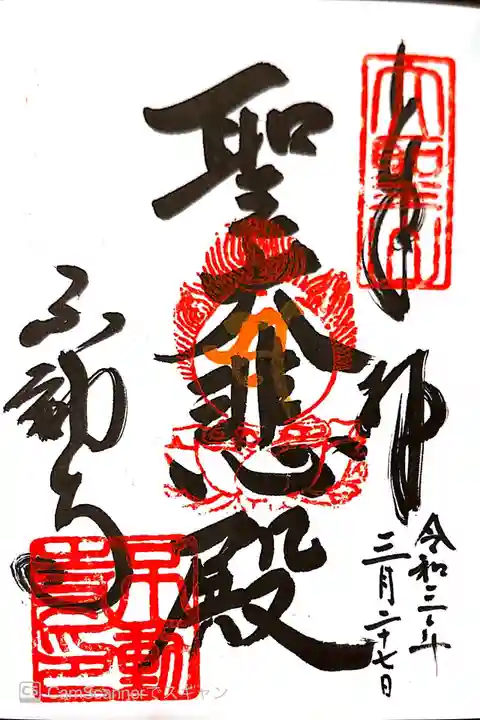 奉拝
大聖山
令和三年
三月二十七日
聖大悲殿
不動寺
CS CamScannerでスキャン